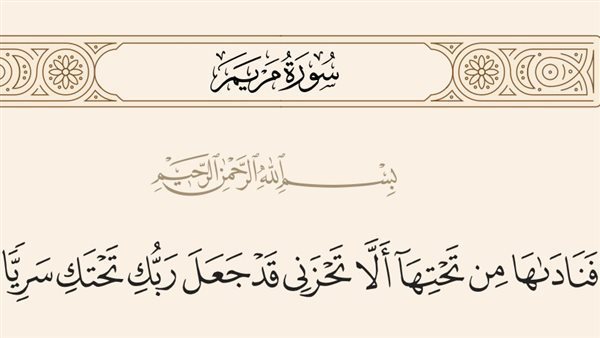 سُورَةُ مَرْيَمَ
بِسْمِ اللَّهِ الرَّحْمَٰنِ الرَّحِيمِ
فَنَادَىٰهَا مِن تَحْتِهَآ أَلَّا تَحْزَنِى قَدْ جَعَلَ رَبُّكِ تَحْتَكِ سَرِيًّا